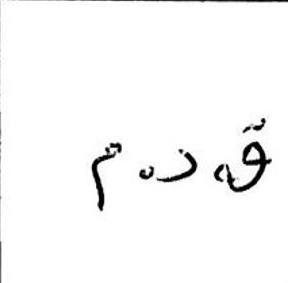 ق، د، م